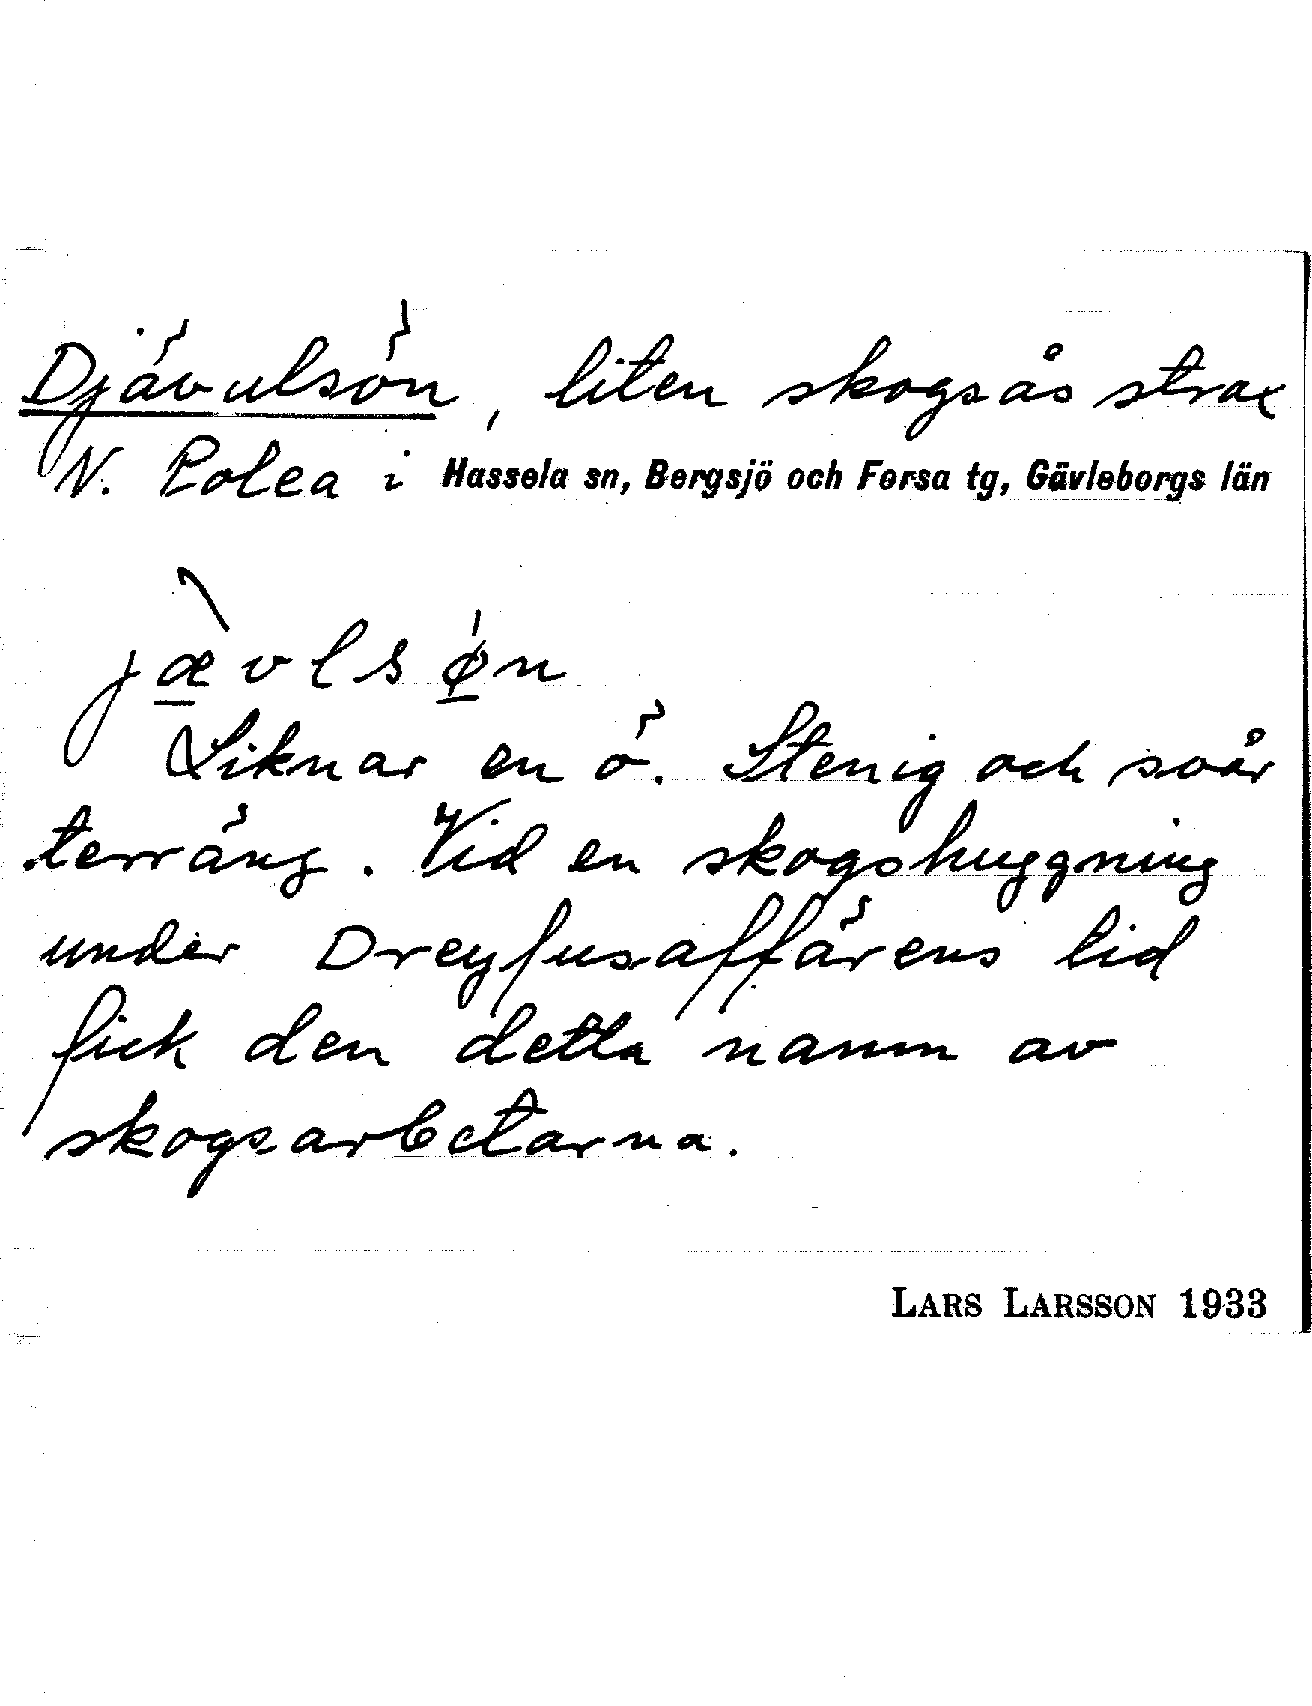 Djävulsön, liten skogsås strax
N. Lolea i Hassela sn, Bergsjö och Forsa tg, Gävleborgs län
jæ̀vlsø̍n
Liknar en ö. Stenig och svår
terräng. Vid en skogshuggning
under Dreyfusaffärens tid
fick den detta namn av
skogsarbetarna.
LARS LARSSON 1933